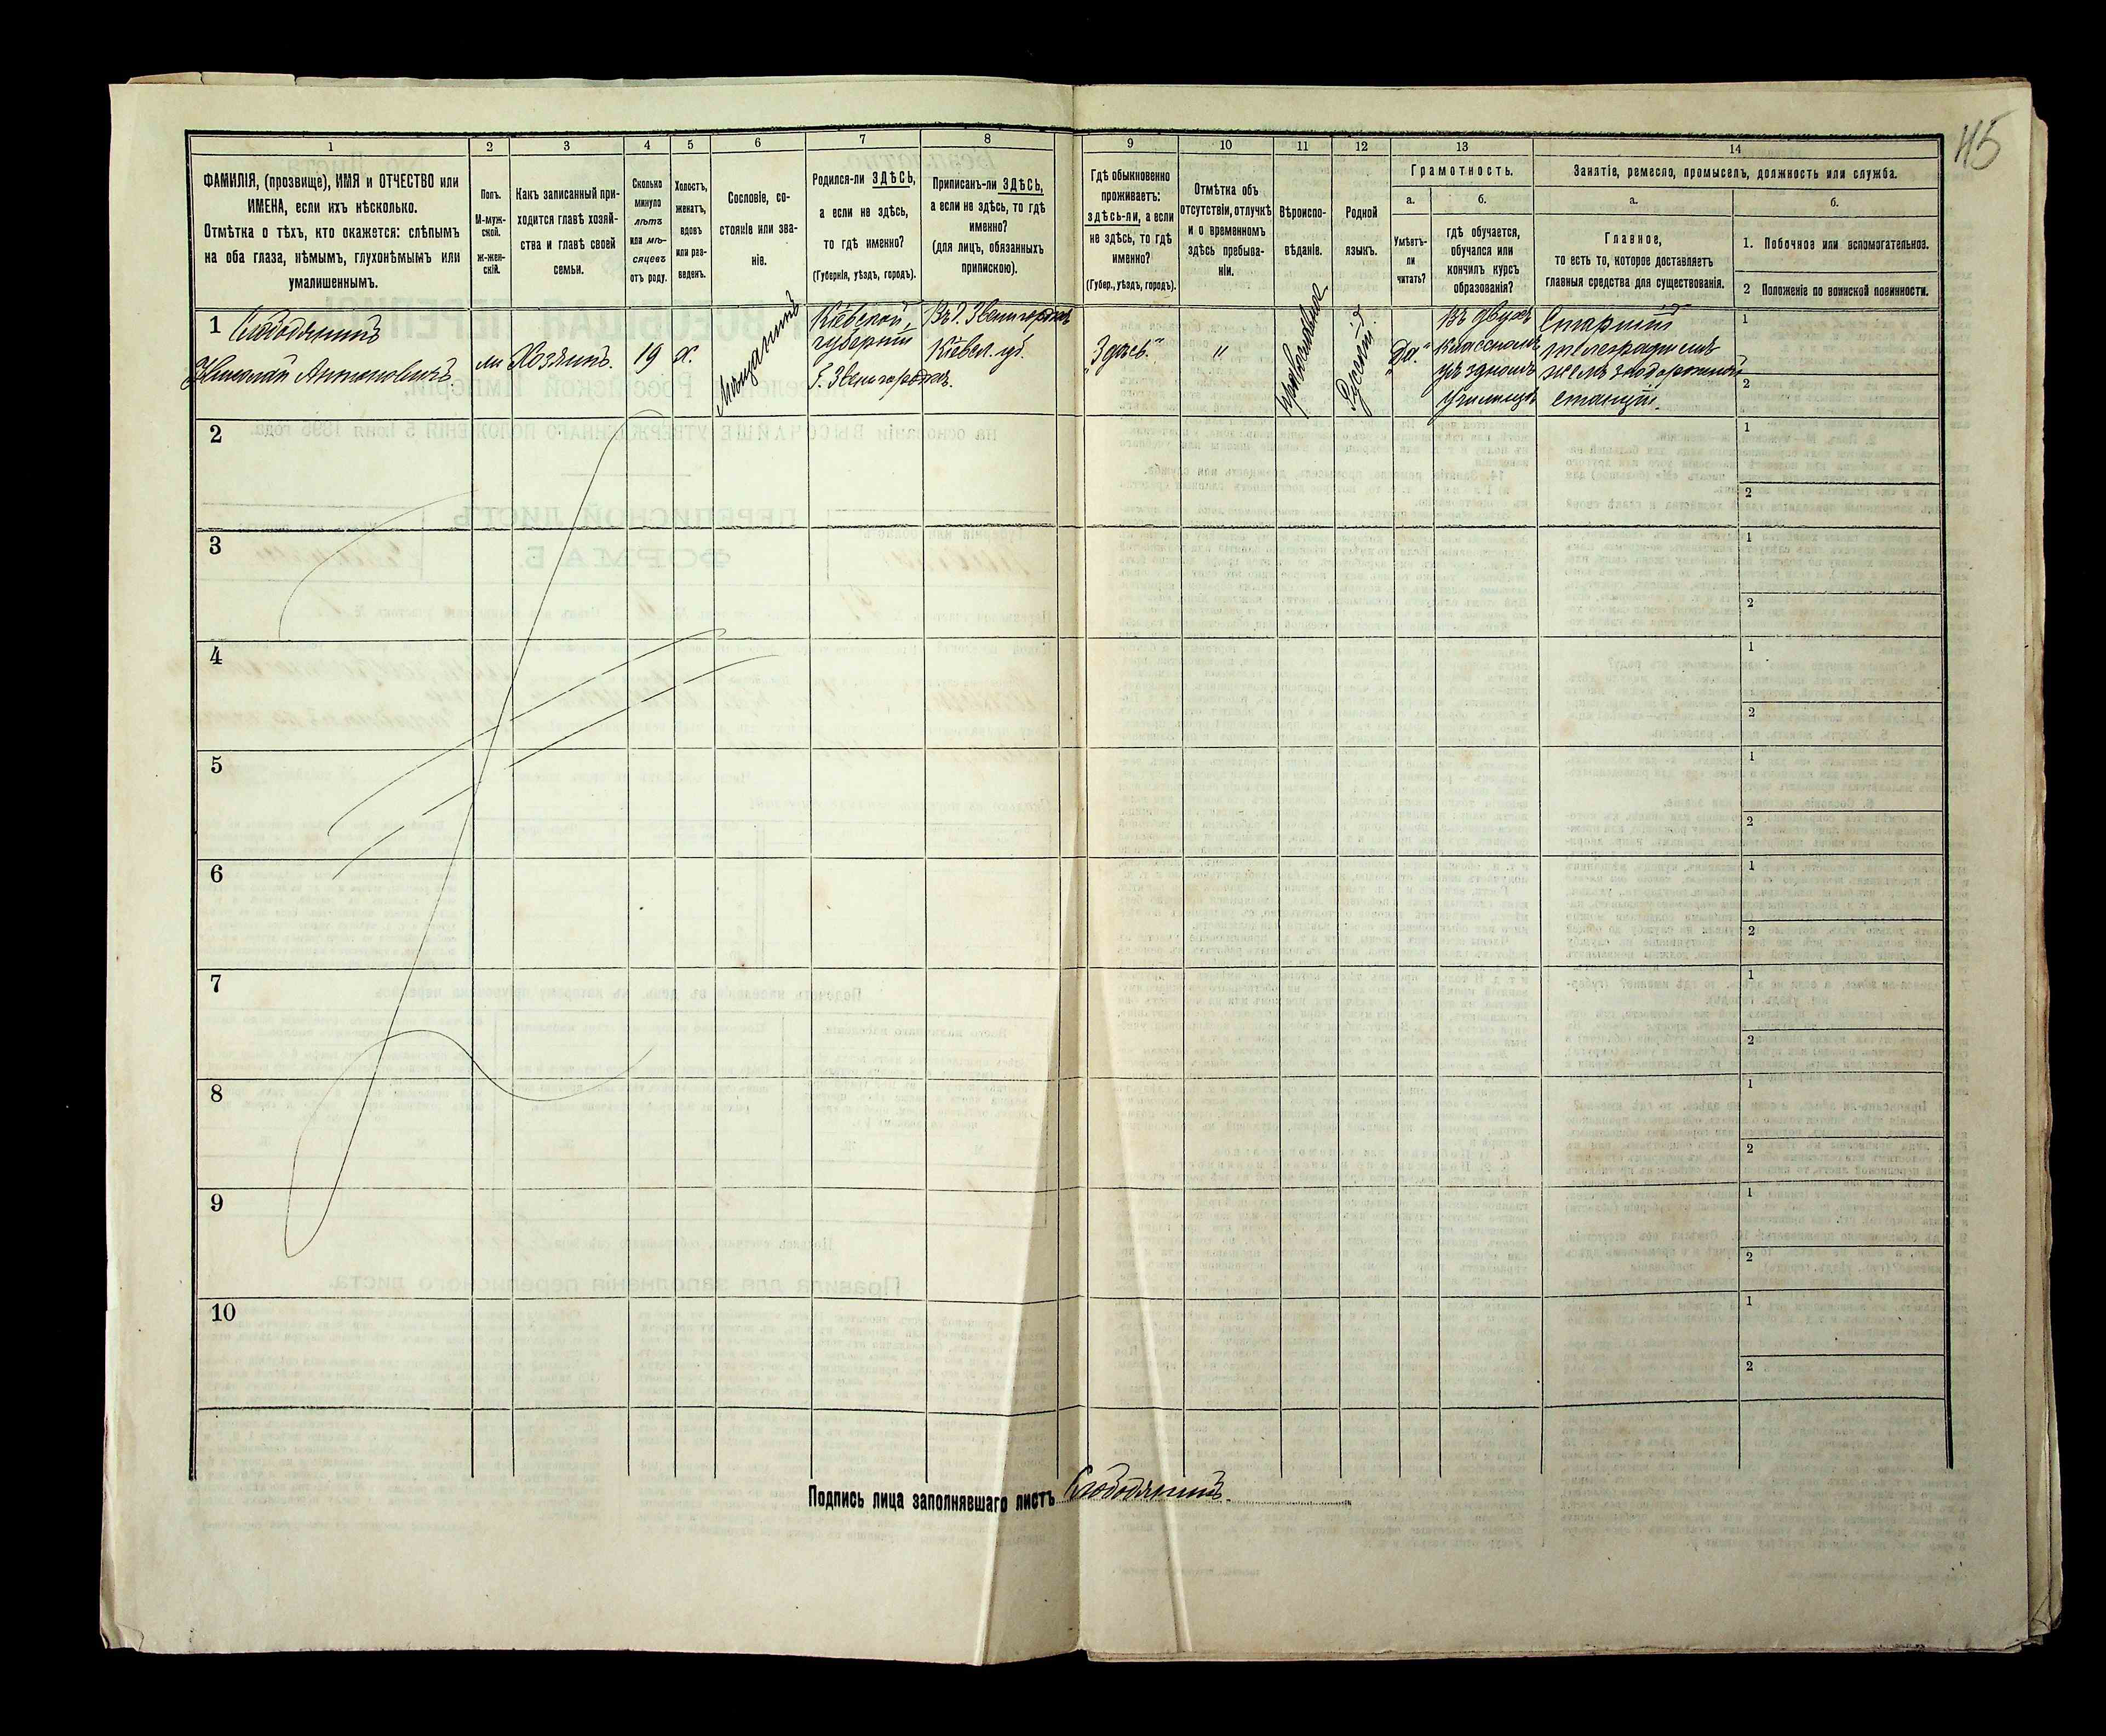 115
1
2
3
4
5
6
7
8
9
10
11
12
13
14
ФАМИЛІЯ, (прозвище), ИМЯ и ОТЧЕСТВО или
ИМЕНА, если ихъ нѣсколько.
Отмѣтка о тѣхъ, кто окажется: слѣпымъ
на оба глаза, нѣмымъ, глухонѣмымъ или
умалишеннымъ.
Полъ.
М-муж-
ской.
ж-жен-
скій.
Какъ записанный при-
ходится главѣ хозяй-
ства и главѣ своей
семьи.
Сколько
минуло
лѣтъ
или мѣ-
сяцевъ
отъ роду.
Холостъ,
женатъ,
вдовъ
или раз-
веденъ.
Сословіе, со-
стояніе или зва-
ніе.
Родился-ли ЗДѢСЬ,
а если не здѣсь,
то гдѣ именно?
(Губернія, уѣздъ, городъ).
Приписанъ-ли ЗДѢСЬ,
а если не здѣсь, то гдѣ
именно?
(для лицъ, обязанныхъ
припискою).
Гдѣ обыкновенно
проживаетъ:
здѣсь-ли, а если
не здѣсь, то гдѣ
именно?
(Губер., уѣздъ, городъ).
Отмѣтка объ
отсутствіи, отлучкѣ
и о временномъ
здѣсь пребыва-
ніи.
Вѣроиспо-
вѣданіе.
Родной
языкъ.
Грамотность.
а.
Умѣетъ-
ли
читать?
б.
гдѣ обучается,
обучался или
кончилъ курсъ
образованія?
Занятіе, ремесло, промыселъ, должность или служба.
а.
Главное,
то есть то, которое доставляетъ
главныя средства для существованія.
б.
1. Побочное или вспомогательное.
2 Положеніе по воинской повинности.
1 Слободяникъ
Николай Антоновичъ
Хозяинъ.
19
х.
Мѣщанинъ
Кіевской
губерніи
Г. Звенигородка.
Въ г. Звенигородкѣ
Кіевск. губ.
„Здѣсь."
"
Православное
Русскій.
„Да."
Въ двухъ
классномъ
уѣздномъ
училищѣ
Старшій
телеграфистъ
желѣзнодорожной
станціи.
1
2
2
1
2
3
1
2
4
1
2
5
1
2
6
1
2
7
1
2
8
1
2
9
1
2
10
1
2
Подпись лица заполнявшаго листъ Слободяникъ